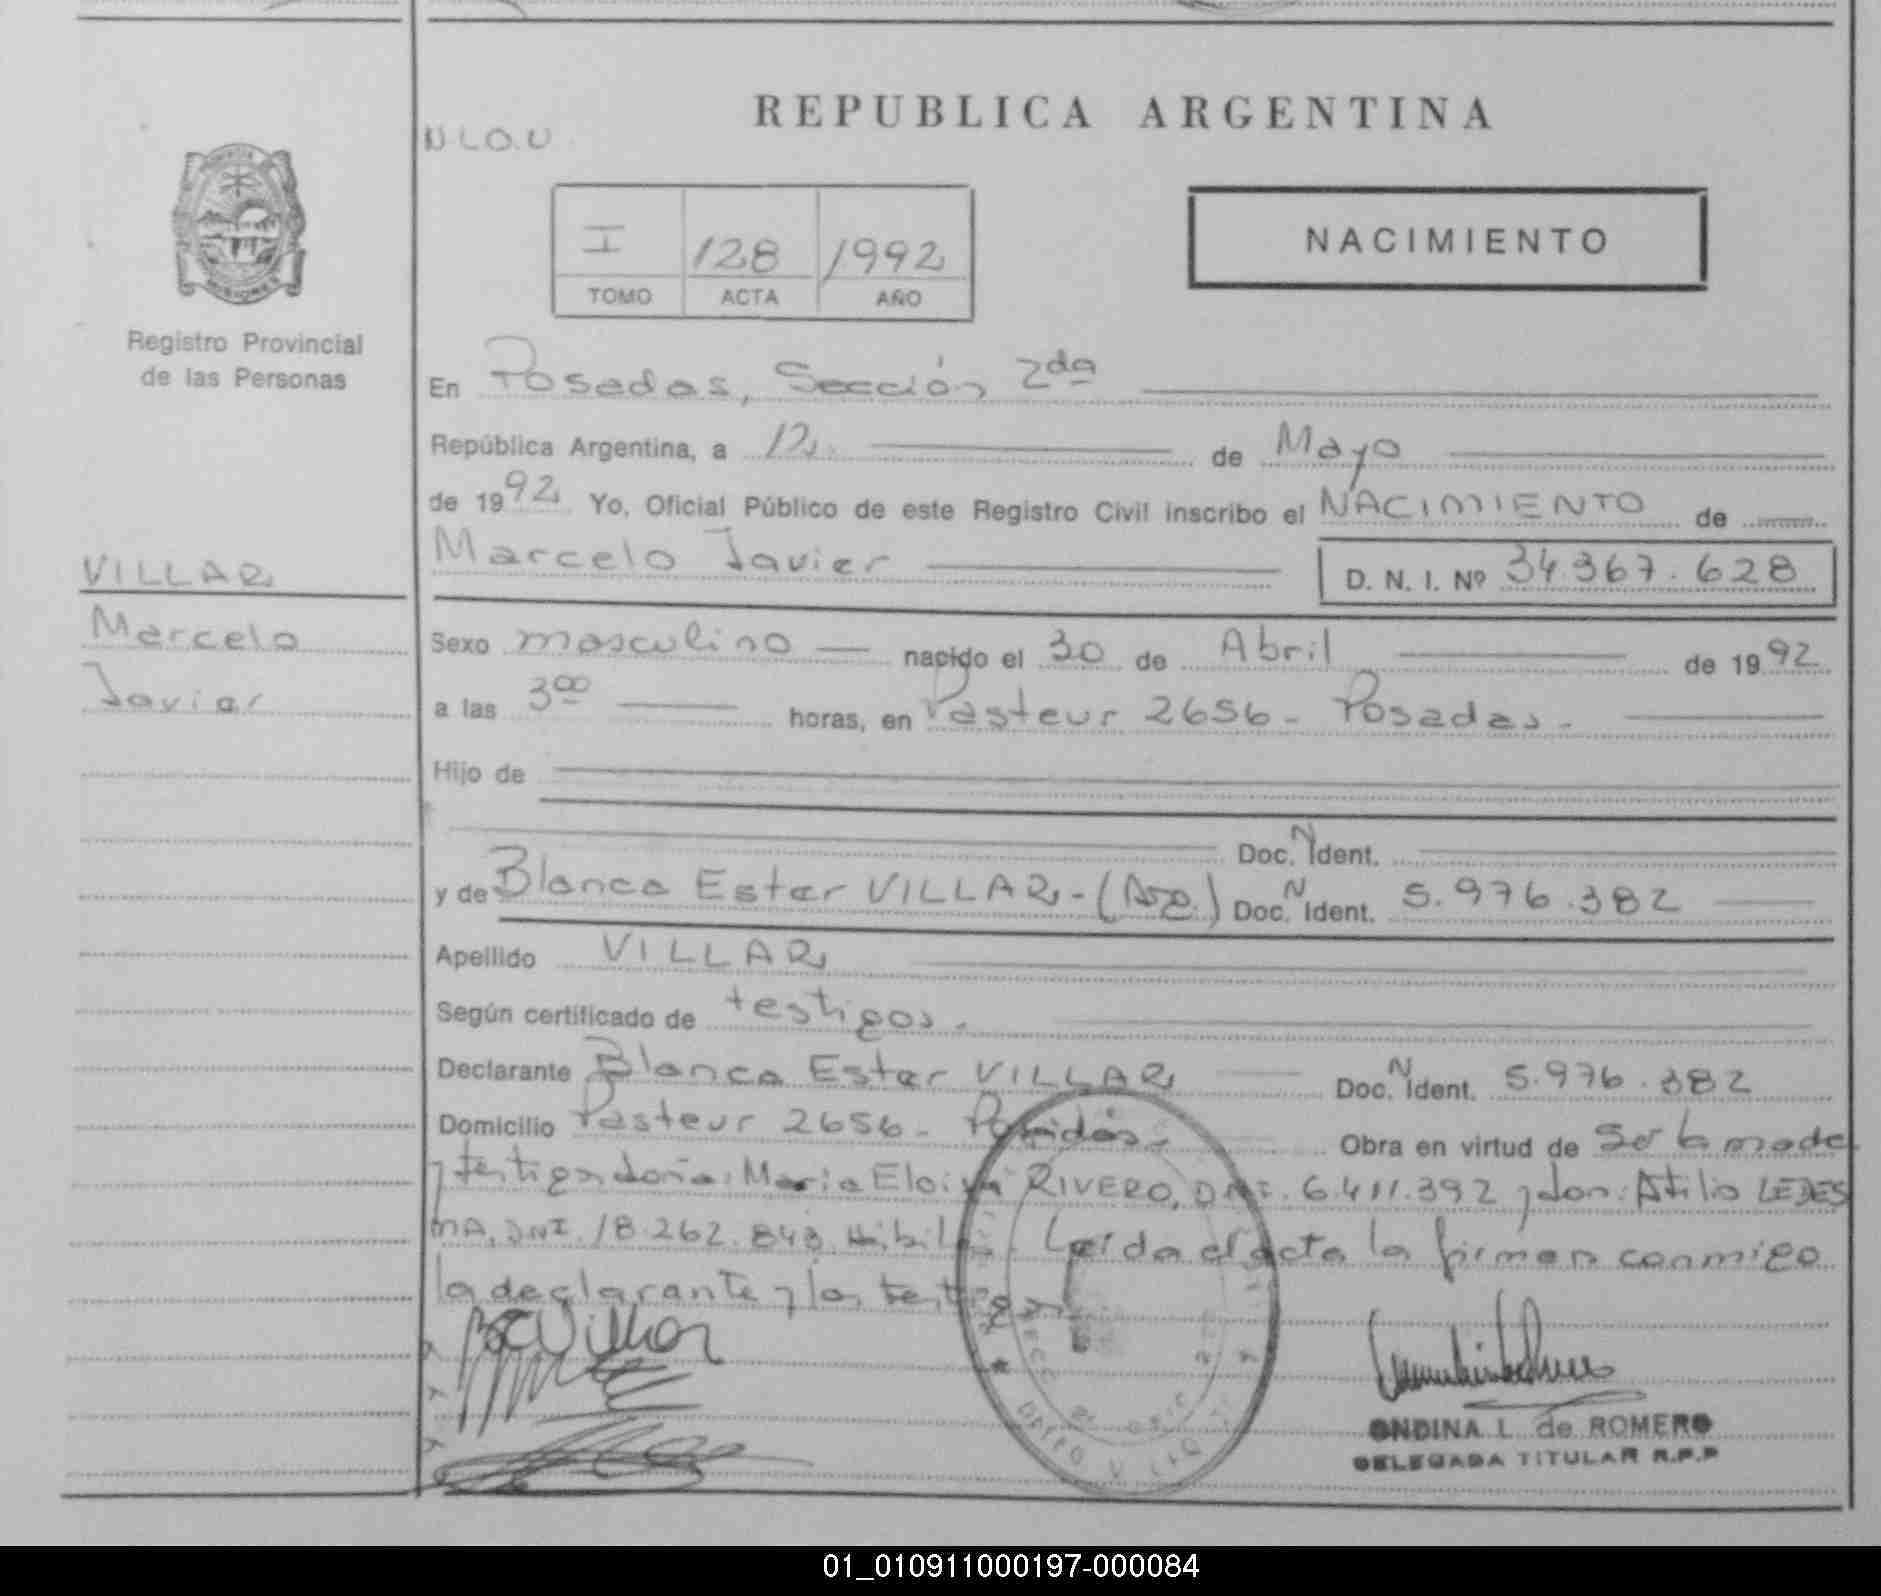 REPUBLICA ARGENTINA
N.L.O.U
I 128 1992
TOMO ACTA AÑO
NACIMIENTO
MISIONES
Registro Provincial
de las Personas
VILLAR
Marcelo
Javier
En Posadas, Sección 2da
República Argentina, a 12 de Mayo
de 1992 Yo, Oficial Público de este Registro Civil inscribo el NACIMIENTO de
Marcelo Javier D. N. I. Nº 34.367.628
Sexo masculino nacido el 30 de Abril de 1992
a las 300 horas, en Pasteur 2656 - Posadas.
Hijo de
Doc. N Ident.
y de Blanca Ester VILLAR - (Arg.) Doc. N Ident. 5.976.382
Apellido VILLAR
Según certificado de testigos.
Declarante Blanca Ester VILLAR Doc. N Ident. 5.976.382
Domicilio Pasteur 2656 - Posadas. Obra en virtud de ser la madre
y testigos doña: Maria Eloisa RIVERO, DNI. 6.411.392 y don: Atilio LEDES
MA, DNI. 18.262.843 Hábiles. Leída el acta la firman conmigo
la declarante y los testigos
BEVillar
ONDINA L. de ROMERO
DELEGADA TITULAR R.P.P
01_010911000197-000084